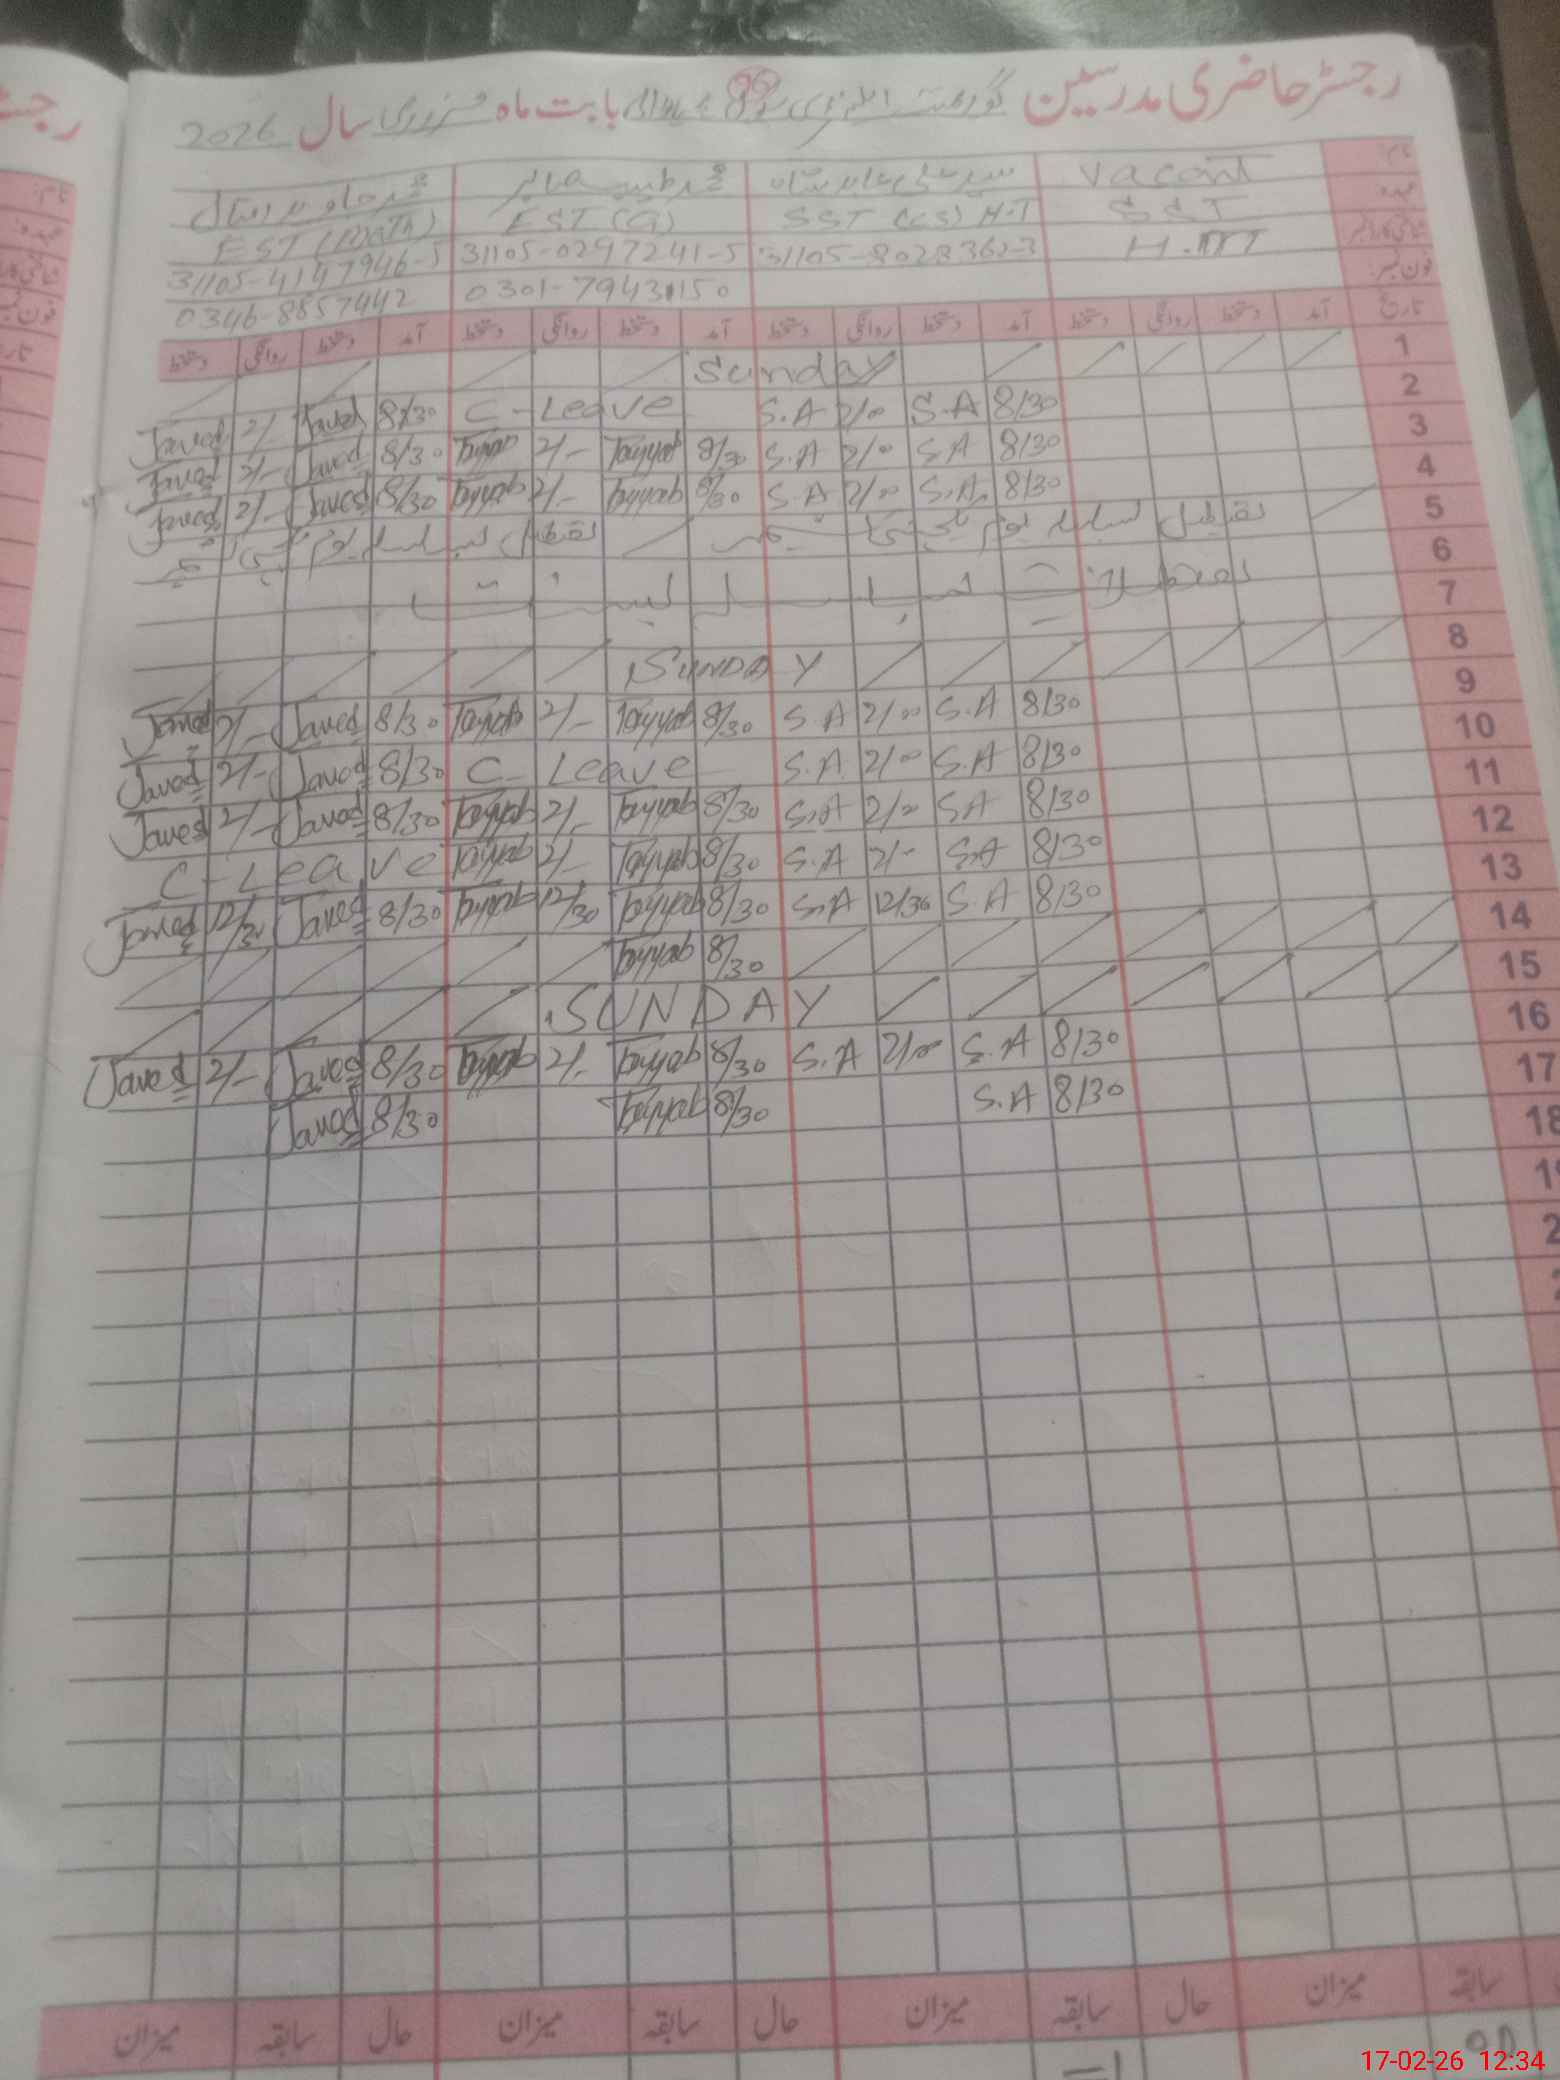 رجسٹر حاضری مدرسین گورنمنٹ بابت ماہ فروری سال 2026
نام: Vacant سید علی عابد شاہ محمد طیب صابر محمد جاوید اقبال
عہدہ: SST SST (CS) H.T EST (G) EST (MATH)
H.M 31105-8028362-3 31105-0297241-5 31105-4147946-5
فون نمبر: 0301-7943150 0346-8857442
تاریخ آمد دستخط روانگی دستخط آمد دستخط روانگی دستخط آمد دستخط روانگی دستخط آمد دستخط روانگی دستخط
1 Sunday
2 8/30 S.A 2/00 S.A C-Leave 8/30 Javed 2/- Javed
3 8/30 S.A 2/00 S.A 8/30 Tayyab 2/- Tayyab 8/30 Javed 2/- Javed
4 8/30 S.A. 2/00 S.A 8/30 Tayyab 2/- Tayyab 8/30 Javed 2/- Javed
5 تعطیل بسلسلہ یوم یکجہتی کشمیر تعطیل بسلسلہ یوم یکجہتی کشمیر
6
7
8 SUNDAY
9 8/30 S.A 2/00 S.A 8/30 Tayyab 2/- Tayyab 8/30 Javed 2/- Javed
10 8/30 S.A 2/00 S.A C-Leave 8/30 Javed 2/- Javed
11 8/30 S.A 2/00 S.A 8/30 Tayyab 2/- Tayyab 8/30 Javed 2/- Javed
12 8/30 S.A 2/- S.A 8/30 Tayyab 2/- Tayyab C-Leave
13 8/30 S.A 12/30 S.A 8/30 Tayyab 12/30 Tayyab 8/30 Javed 12/30 Javed
14 8/30 Tayyab
15 SUNDAY
16 8/30 S.A 2/00 S.A 8/30 Tayyab 2/- Tayyab 8/30 Javed 2/- Javed
17 8/30 S.A 8/30 Tayyab 8/30 Javed
18
سابقہ میزان حال سابقہ میزان حال سابقہ میزان حال سابقہ میزان
17-02-26 12:34